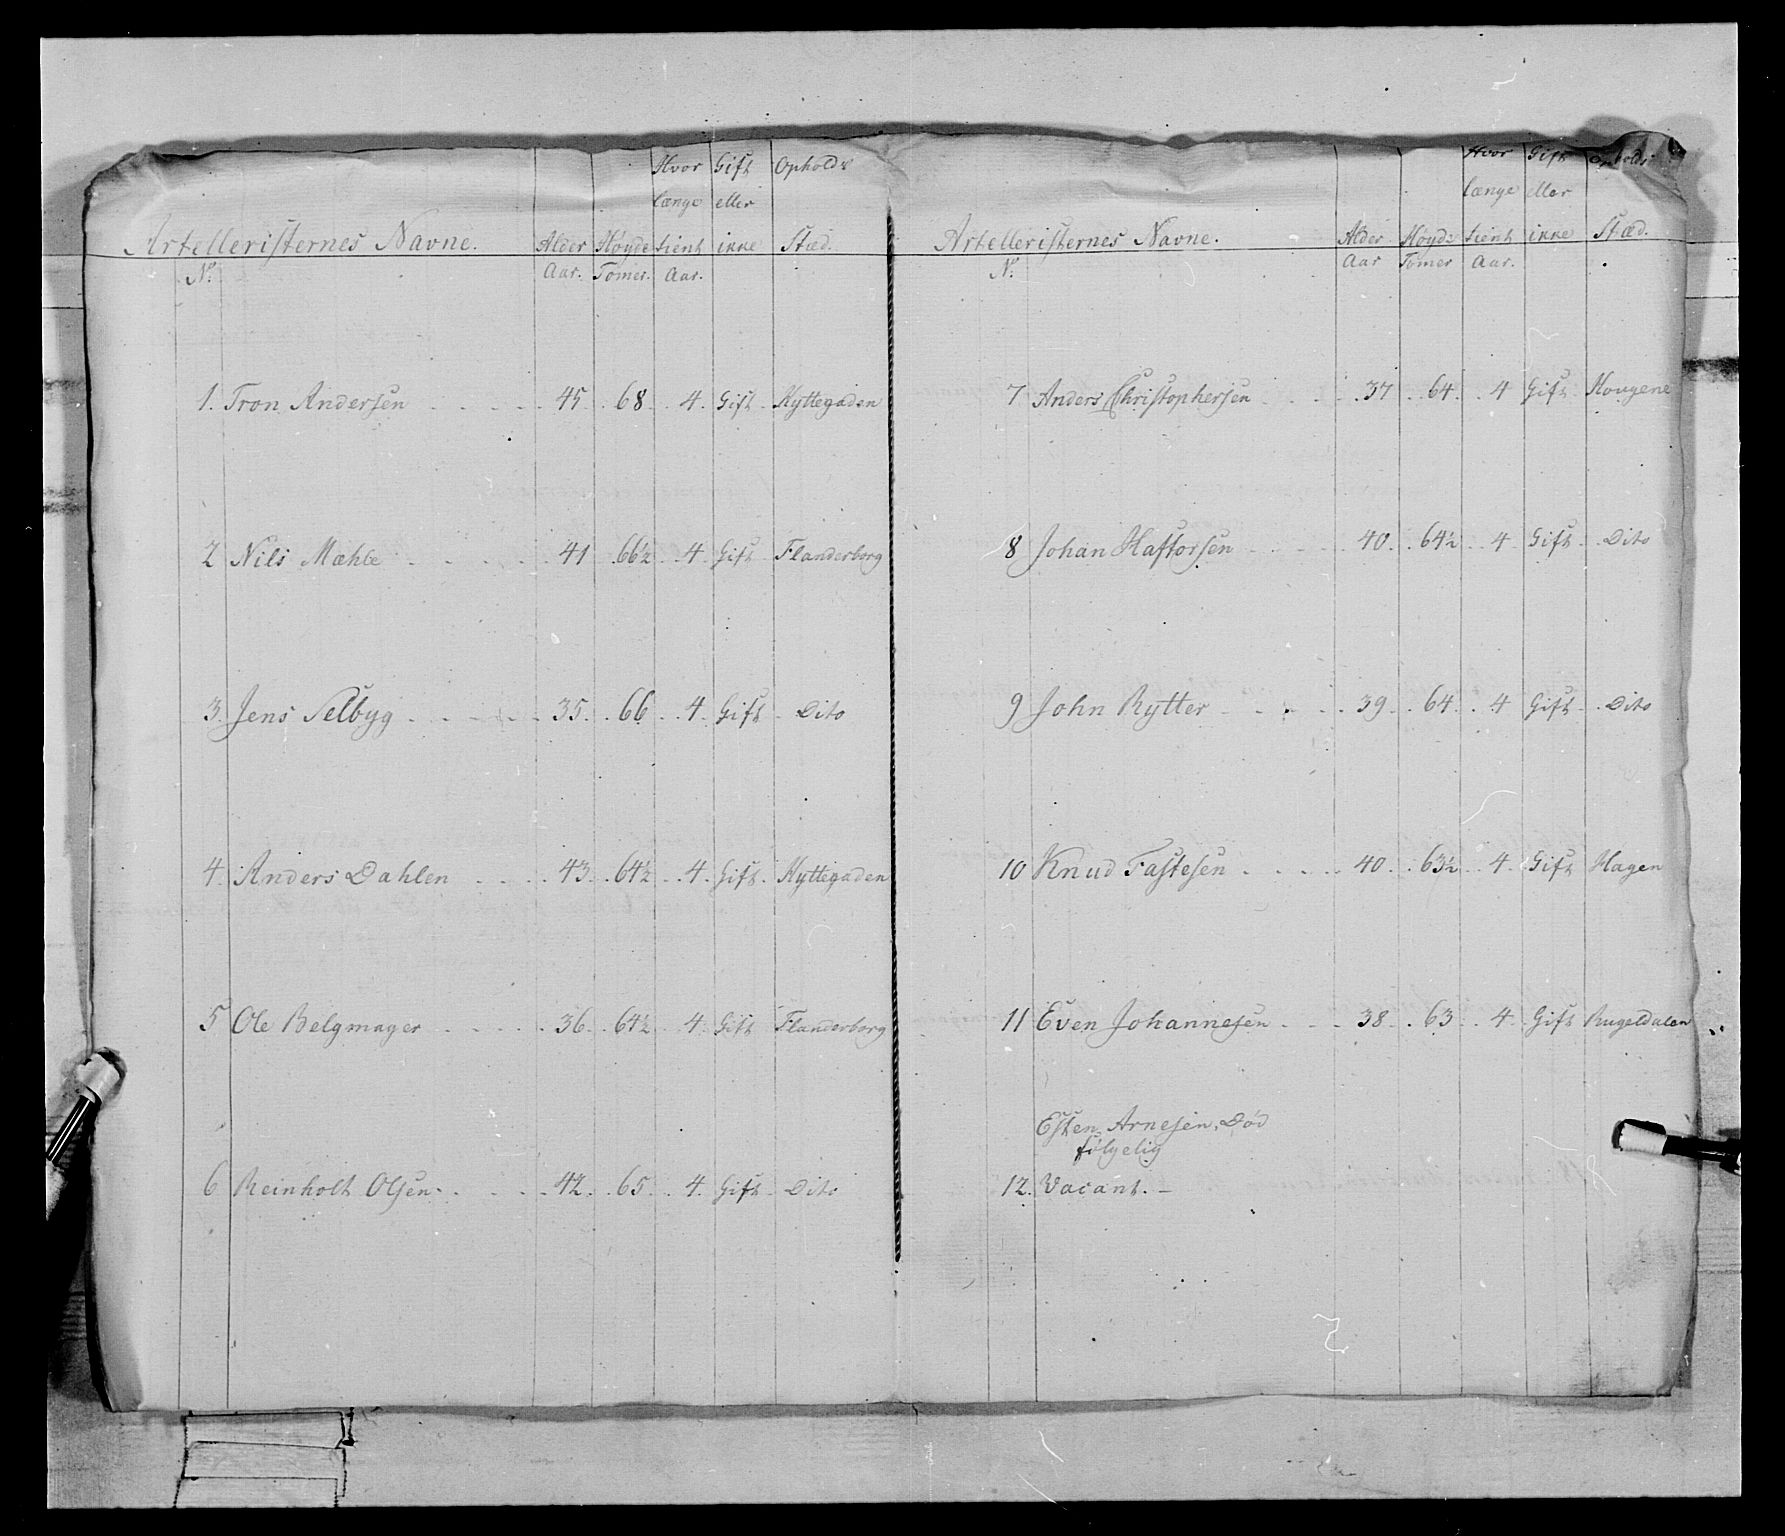 Hvor Gift Opholds
længe eller
Artelleristernes Navne. Alder Høyde tient ikke Stæd.
No. Aar. Tomer. Aar.
1. Tron Andersen 45 68 4 Gift Hyttegaden
2 Nils Mæhle 41 66½ 4 Gift Flanderborg
3. Jens Selbyg 35 66 4 Gift Dito
4. Anders Dahlen 43 64½ 4 Gift Hyttegaden
5 Ole Belgmager 36 64½ 4 Gift Flanderborg
6 Reinholt Olsen 42 65 4 Gift Dito
Hvor Gift Opholds
længe eller
Artelleristernes Navne. Alder Høyde tient ikke Stæd.
No. Aar Tomer Aar.
7 Anders Christophersen 37 64 4 Gift Hougene
8 Johan Haftorsen 40 64½ 4 Gift Dito
9 John Rytter 39 64 4 Gift Dito
10 Knud Fastesen 40 63½ 4 Gift Hagen
11 Even Johannesen 38 63 4 Gift Rugeldalen
Esten Arnesen, Død
følgelig
12. Vacant. –